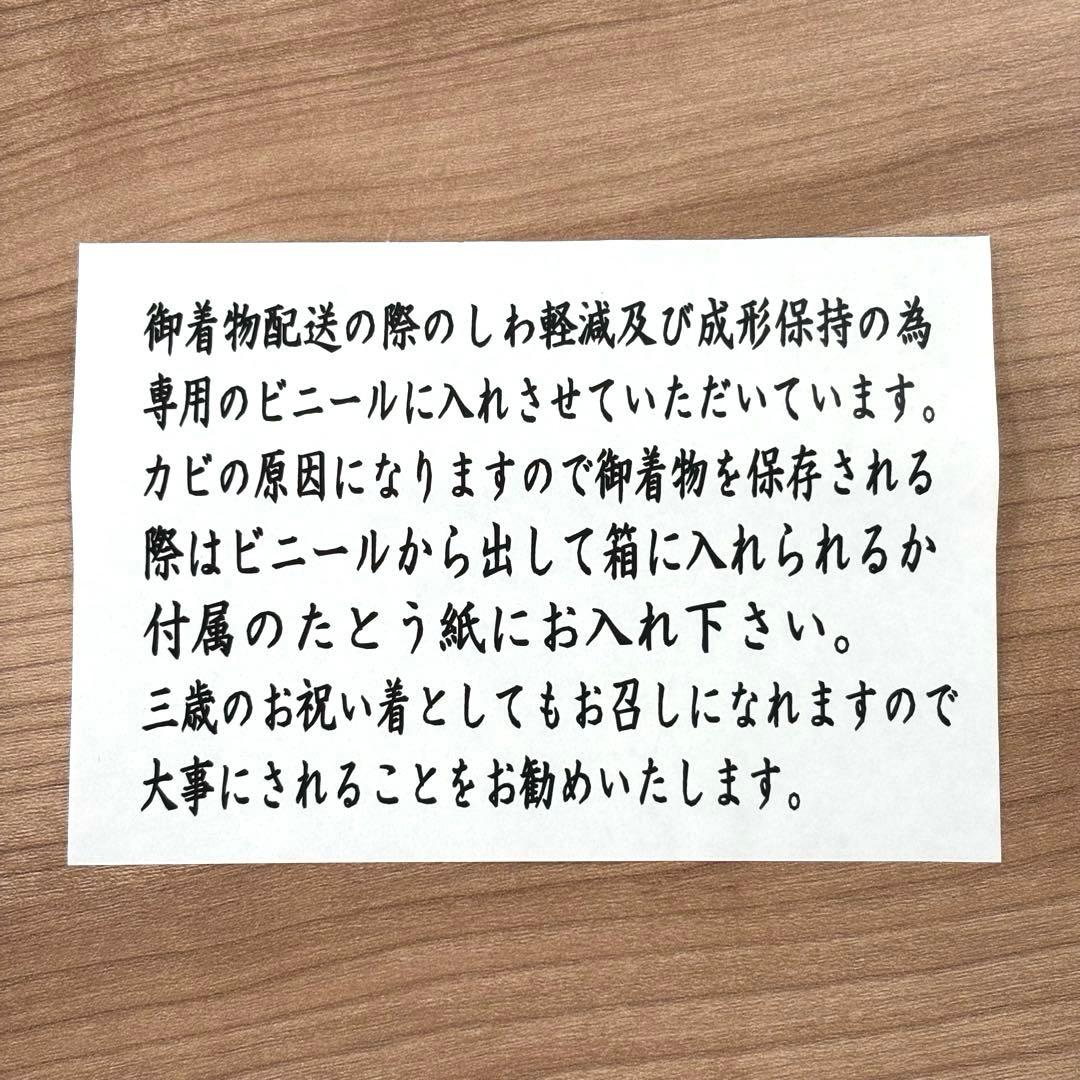 御着物配送の際のしわ軽減及び成形保持の為
専用のビニールに入れさせていただいています。
カビの原因になりますので御着物を保存される
際はビニールから出して箱に入れられるか
付属のたとう紙にお入れ下さい。
三歳のお祝い着としてもお召しになれますので
大事にされることをお勧めいたします。